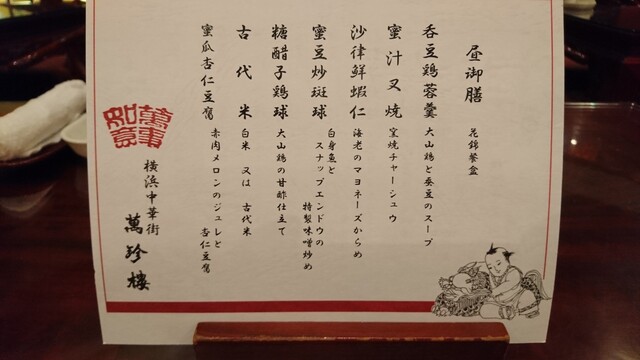 昼御膳 花錦餐盒
呑豆鶏蓉羹 大山鶏と蚕豆のスープ
蜜汁叉焼 窯焼チャーシュウ
沙律鮮蝦仁 海老のマヨネーズからめ
蜜豆炒斑球 白身魚と
スナップエンドウの
特製味噌炒め
糖醋子鶏球 大山鶏の甘酢仕立て
古代米 白米 又は 古代米
蜜瓜杏仁豆腐 赤肉メロンのジュレと
杏仁豆腐
萬事
如意
横浜中華街
萬珍樓